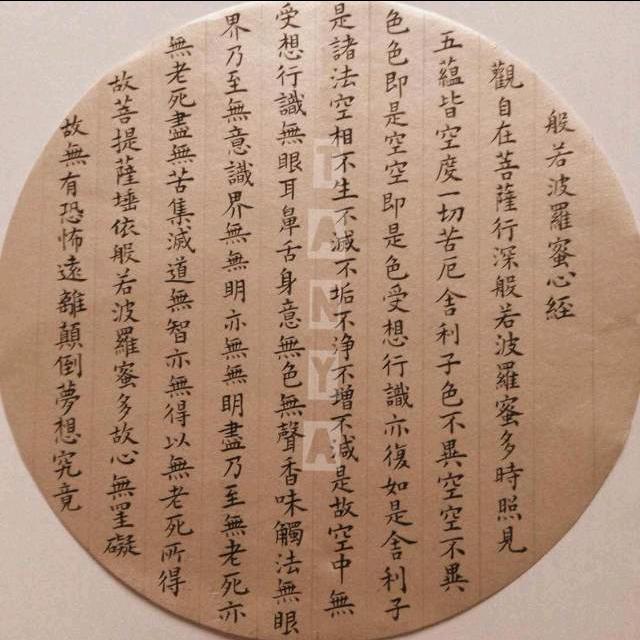 般若波羅蜜心経
觀自在菩薩行深般若波羅蜜多時照見
五蘊皆空度一切苦厄舍利子色不異空空不異
色色即是空空即是色受想行識亦復如是舍利子
是諸法空相不生不滅不垢不淨不增不減是故空中無
受想行識無眼耳鼻舌身意無色無聲香味觸法無眼
界乃至無意識界無無明亦無無明盡乃至無老死亦
無老死盡無苦集滅道無智亦無得以無老死所得
故菩提薩埵依般若波羅蜜多故心無罣礙
故無有恐怖遠離顛倒夢想究竟
TANYA